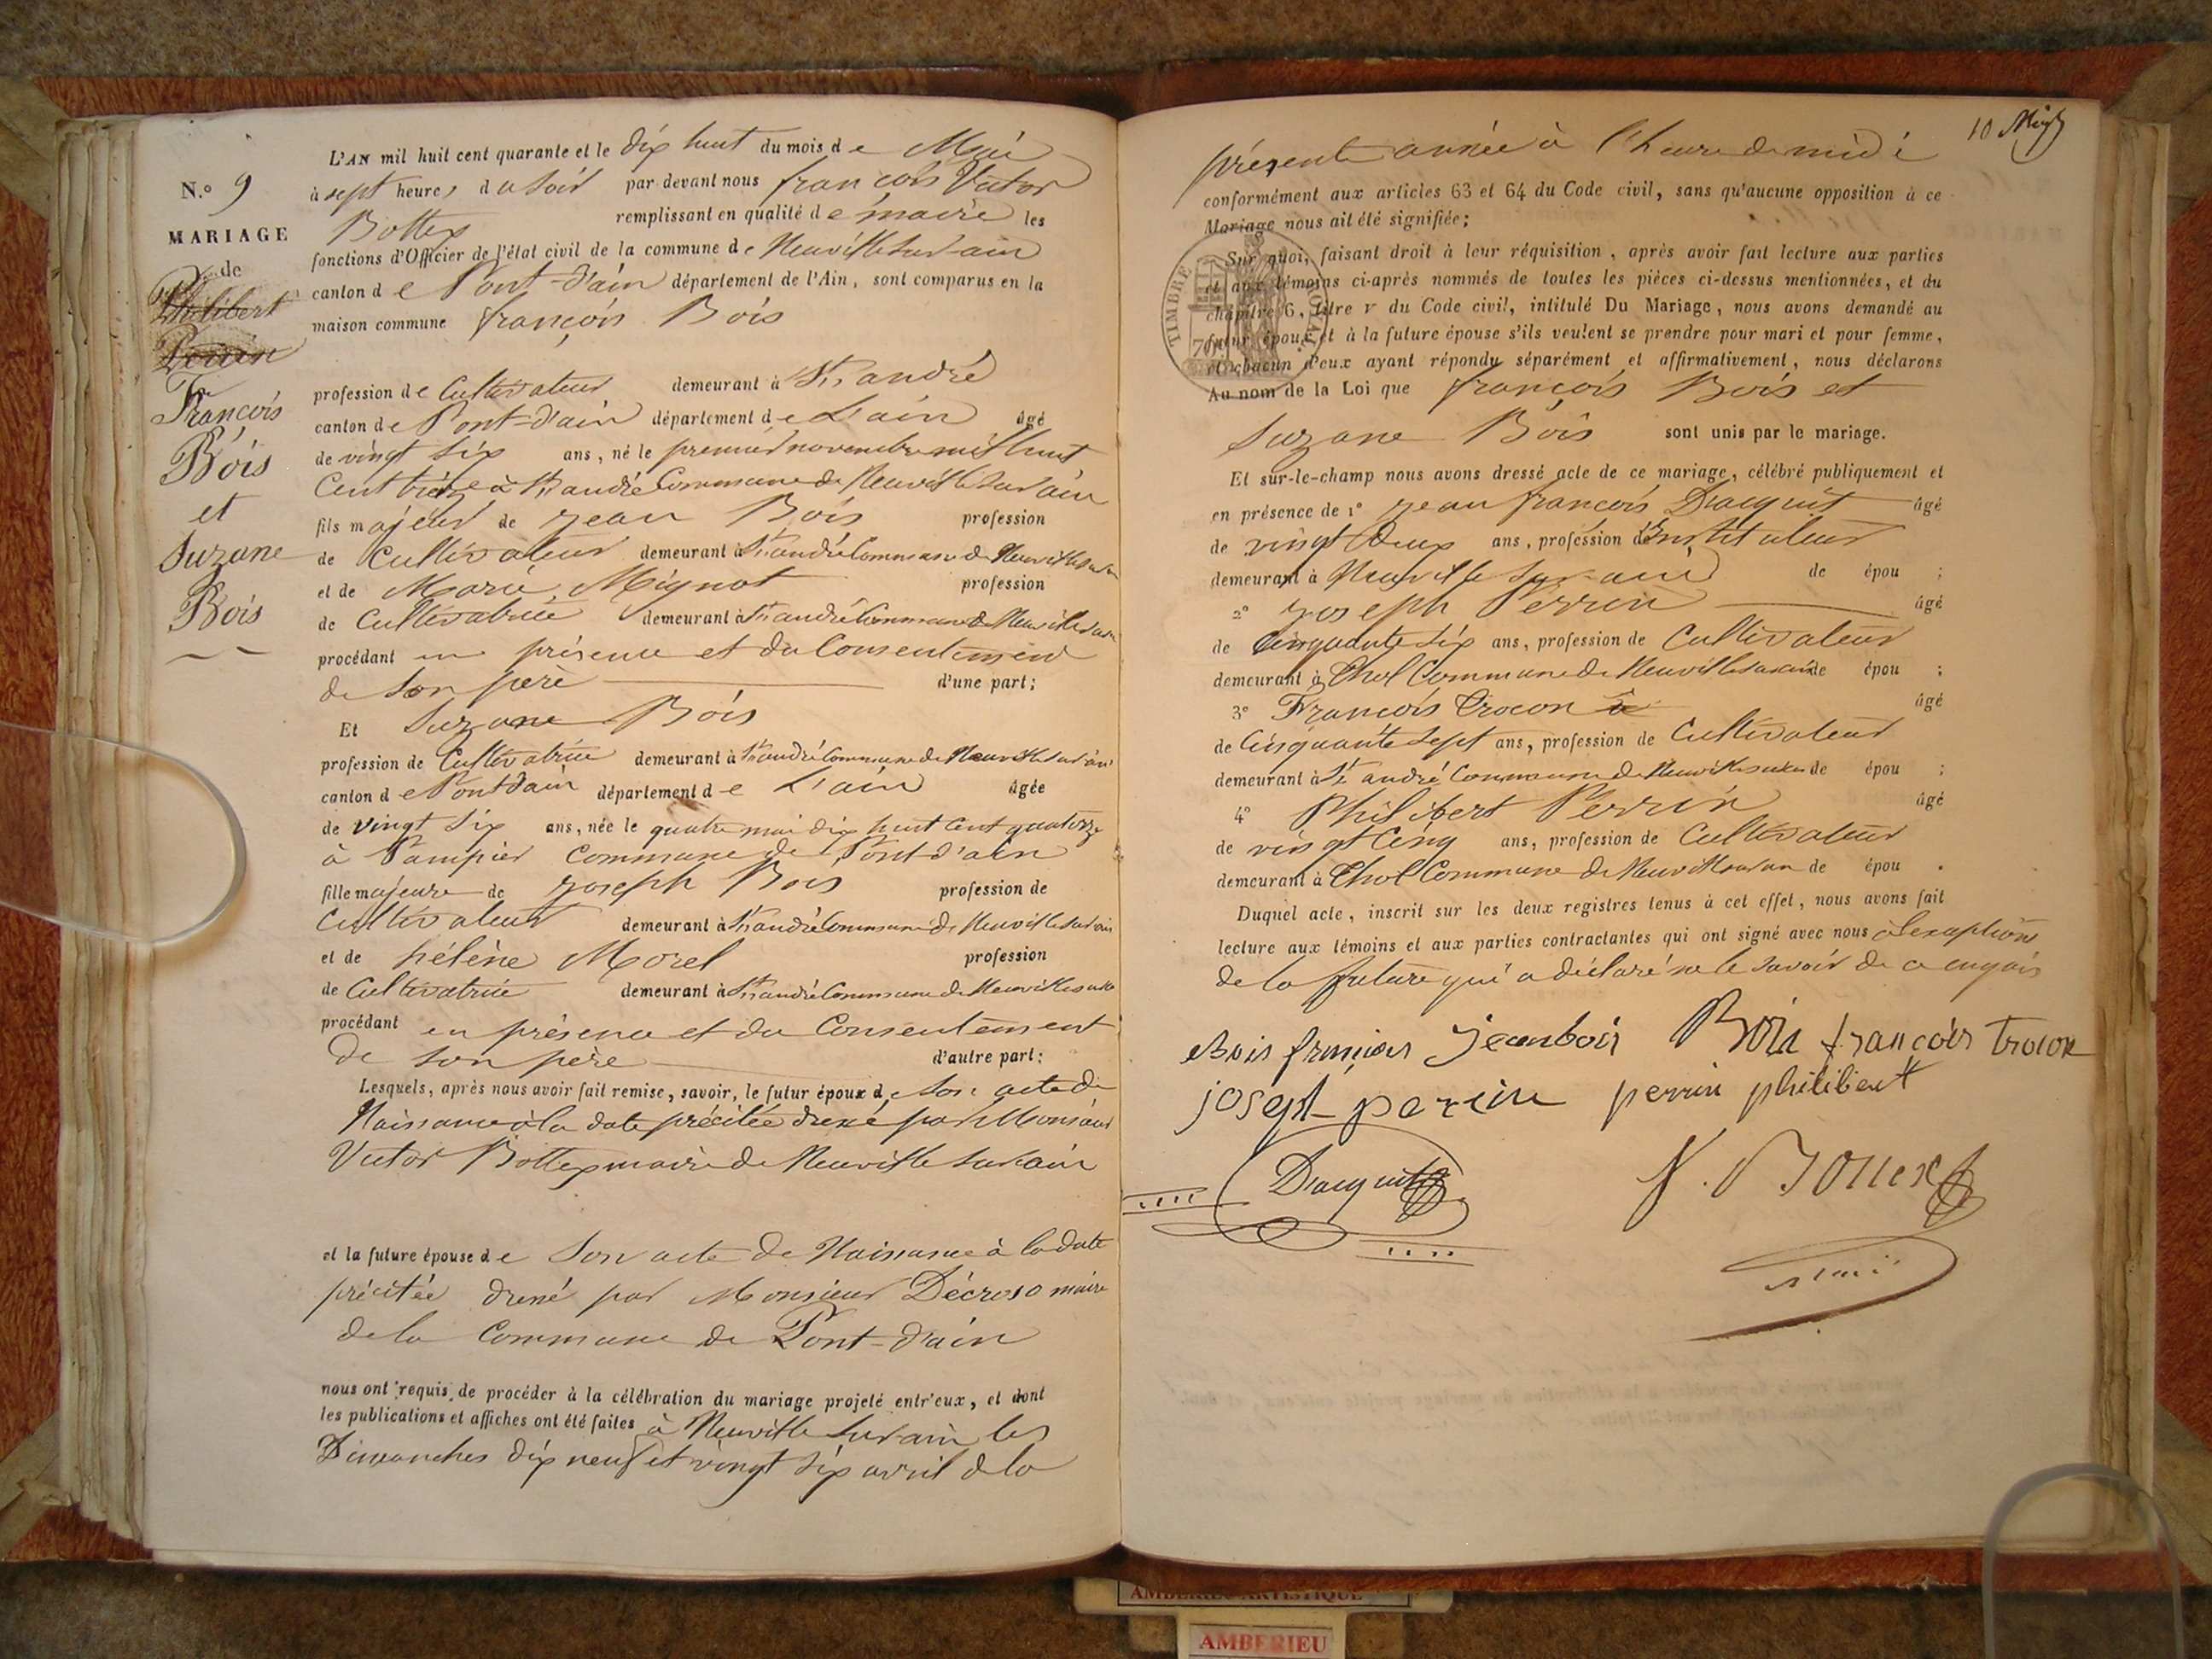 L'AN mil huit cent quarante et le dix huit du mois de Mai
à sept heures du soir par-devant nous françois Victor
Bottex remplissant en qualité de maire les
fonctions d'Officier de l'état civil de la commune de Neuville sur ain
canton de Pont-d'ain département de l'Ain, sont comparus en la
maison commune françois Bois
N.º 9
MARIAGE
de
Philibert
Perrin
François
Bois
et
Suzane
Bois
profession de Cultivateur demeurant à St andré
canton de Pont-d'ain département de L'ain âgé
de vingt six ans, né le premier novembre mil huit
Cent treize à St andré Commune de Neuville sur ain
fils majeur de jean Bois profession
de Cultivateur demeurant à St andré Commune de Neuville sur ain
et de Marie Mignot profession
de Cultivatrice demeurant à St andré Commune de Neuville sur ain
procédant en présence et du Consentement
de son père d'une part;
Et Suzane Bois
profession de Cultivatrice demeurant à St andré Commune de Neuville sur ain
canton de Pont d'ain département de L'ain âgée
de vingt six ans, née le quatre mai dix huit Cent quatorze
à Vampier Commune de Pont-d'ain
fille majeure de joseph Bois profession de
Cultivateur demeurant à St andré Commune de Neuville sur ain
et de hélène Morel profession
de Cultivatrice demeurant à St andré Commune de Neuville sur ain
procédant en présence et du Consentement
de son père d'autre part:
Lesquels, après nous avoir fait remise, savoir, le futur époux de Son acte de
Naissance à la date précitée dressé par Monsieur
Victor Bottex maire de Neuville sur ain
et la future épouse de Son acte de Naissance à la date
précitée dressé par Monsieur Décroso maire
de la Commune de Pont-d'ain
nous ont requis de procéder à la célébration du mariage projeté entr'eux, et dont
les publications et affiches ont été faites à Neuville sur ain les
Dimanches dix neuf et vingt six avril de la
10
présente année à l'heure de midi
conformément aux articles 63 et 64 du Code civil, sans qu'aucune opposition à ce
Mariage nous ait été signifiée;
Sur quoi, faisant droit à leur réquisition, après avoir fait lecture aux parties
et aux témoins ci-après nommés de toutes les pièces ci-dessus mentionnées, et du
chapitre 6, titre v du Code civil, intitulé Du Mariage, nous avons demandé au
futur époux et à la future épouse s'ils veulent se prendre pour mari et pour femme,
et chacun d'eux ayant répondu séparément et affirmativement, nous déclarons
Au nom de la Loi que françois Bois et
Suzane Bois sont unis par le mariage.
TIMBRE ROYAL
Et sur-le-champ nous avons dressé acte de ce mariage, célébré publiquement et
en présence de 1º jean françois Dacquit âgé
de vingt deux ans, profession d'Instituteur
demeurant à Neuville sur ain de épou ;
2º joseph Perrin âgé
de Cinquante six ans, profession de Cultivateur
demeurant à Chol Commune de Neuville sur ain de épou ;
3º François Trocon âgé
de Cinquante sept ans, profession de Cultivateur
demeurant à St andré Commune de Neuville sur ain de épou ;
4º Philibert Perrin âgé
de vingt Cinq ans, profession de Cultivateur
demeurant à Chol Commune de Neuville sur ain de épou .
Duquel acte, inscrit sur les deux registres tenus à cet effet, nous avons fait
lecture aux témoins et aux parties contractantes qui ont signé avec nous à l'exaption
de la future qui a déclaré ne le savoir de ce enquis
Bois françois jean bois Bois françois trocon
joseph perrin perrin philibert
Dacquit V. Bottex
maire
AMBERIEU ARTISTIQUE
AMBERIEU